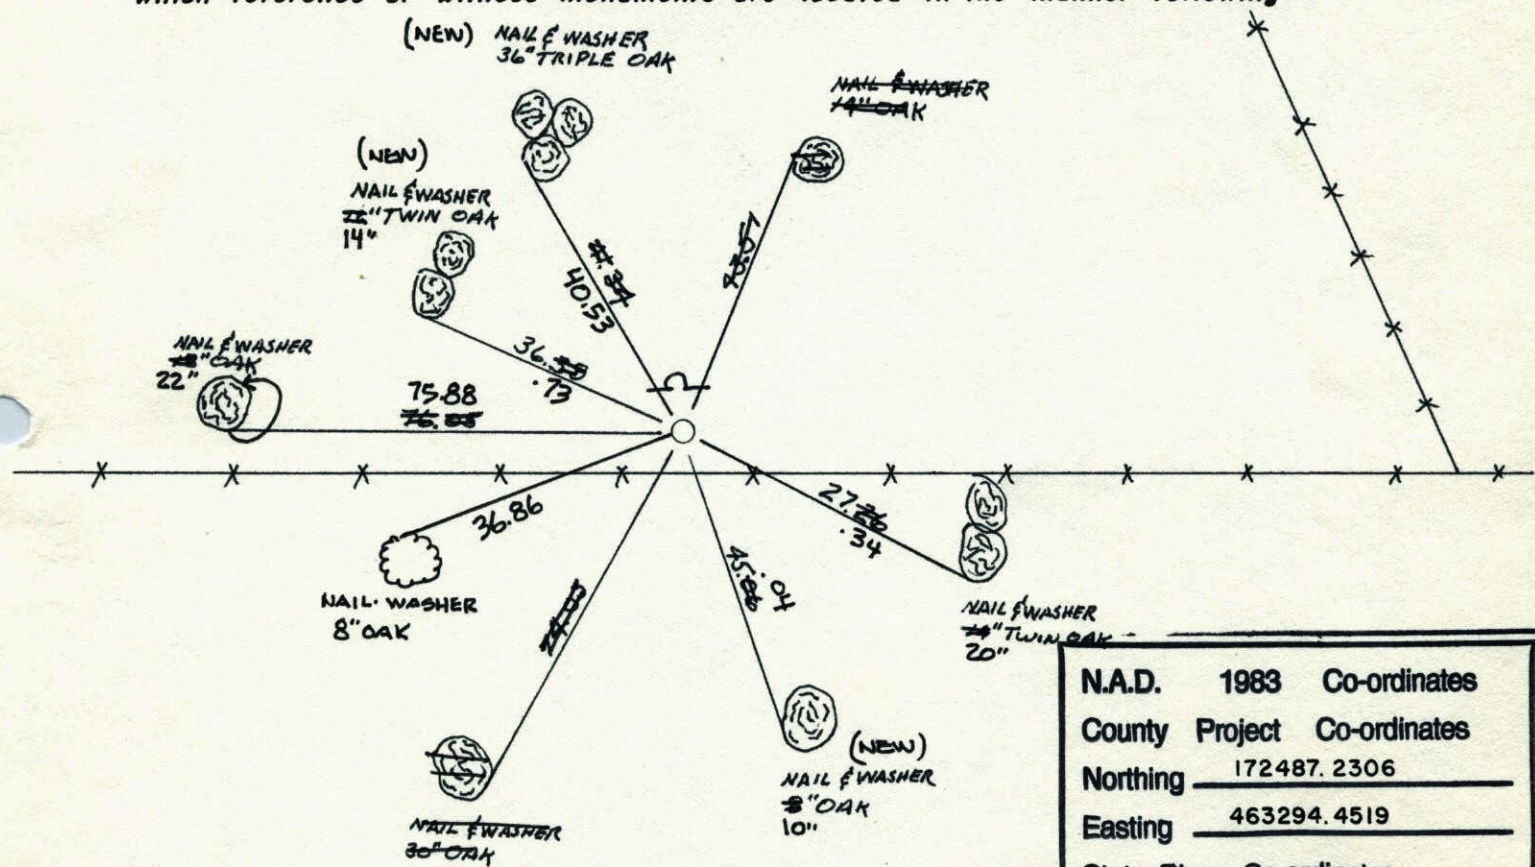 (NEW) NAIL & WASHER
36" TRIPLE OAK
NAIL & WASHER
14" OAK
(NEW)
NAIL & WASHER
" TWIN OAK
14"
40.53
36.
.73
NAIL & WASHER
" OAK
22"
75.88
36.86
NAIL. WASHER
8" OAK
27.26
.34
45. .04
NAIL & WASHER
14" TWIN OAK
20"
(NEW)
NAIL & WASHER
8" OAK
10"
NAIL & WASHER
30" OAK
N.A.D. 1983 Co-ordinates
County Project Co-ordinates
Northing 172487.2306
Easting 463294.4519